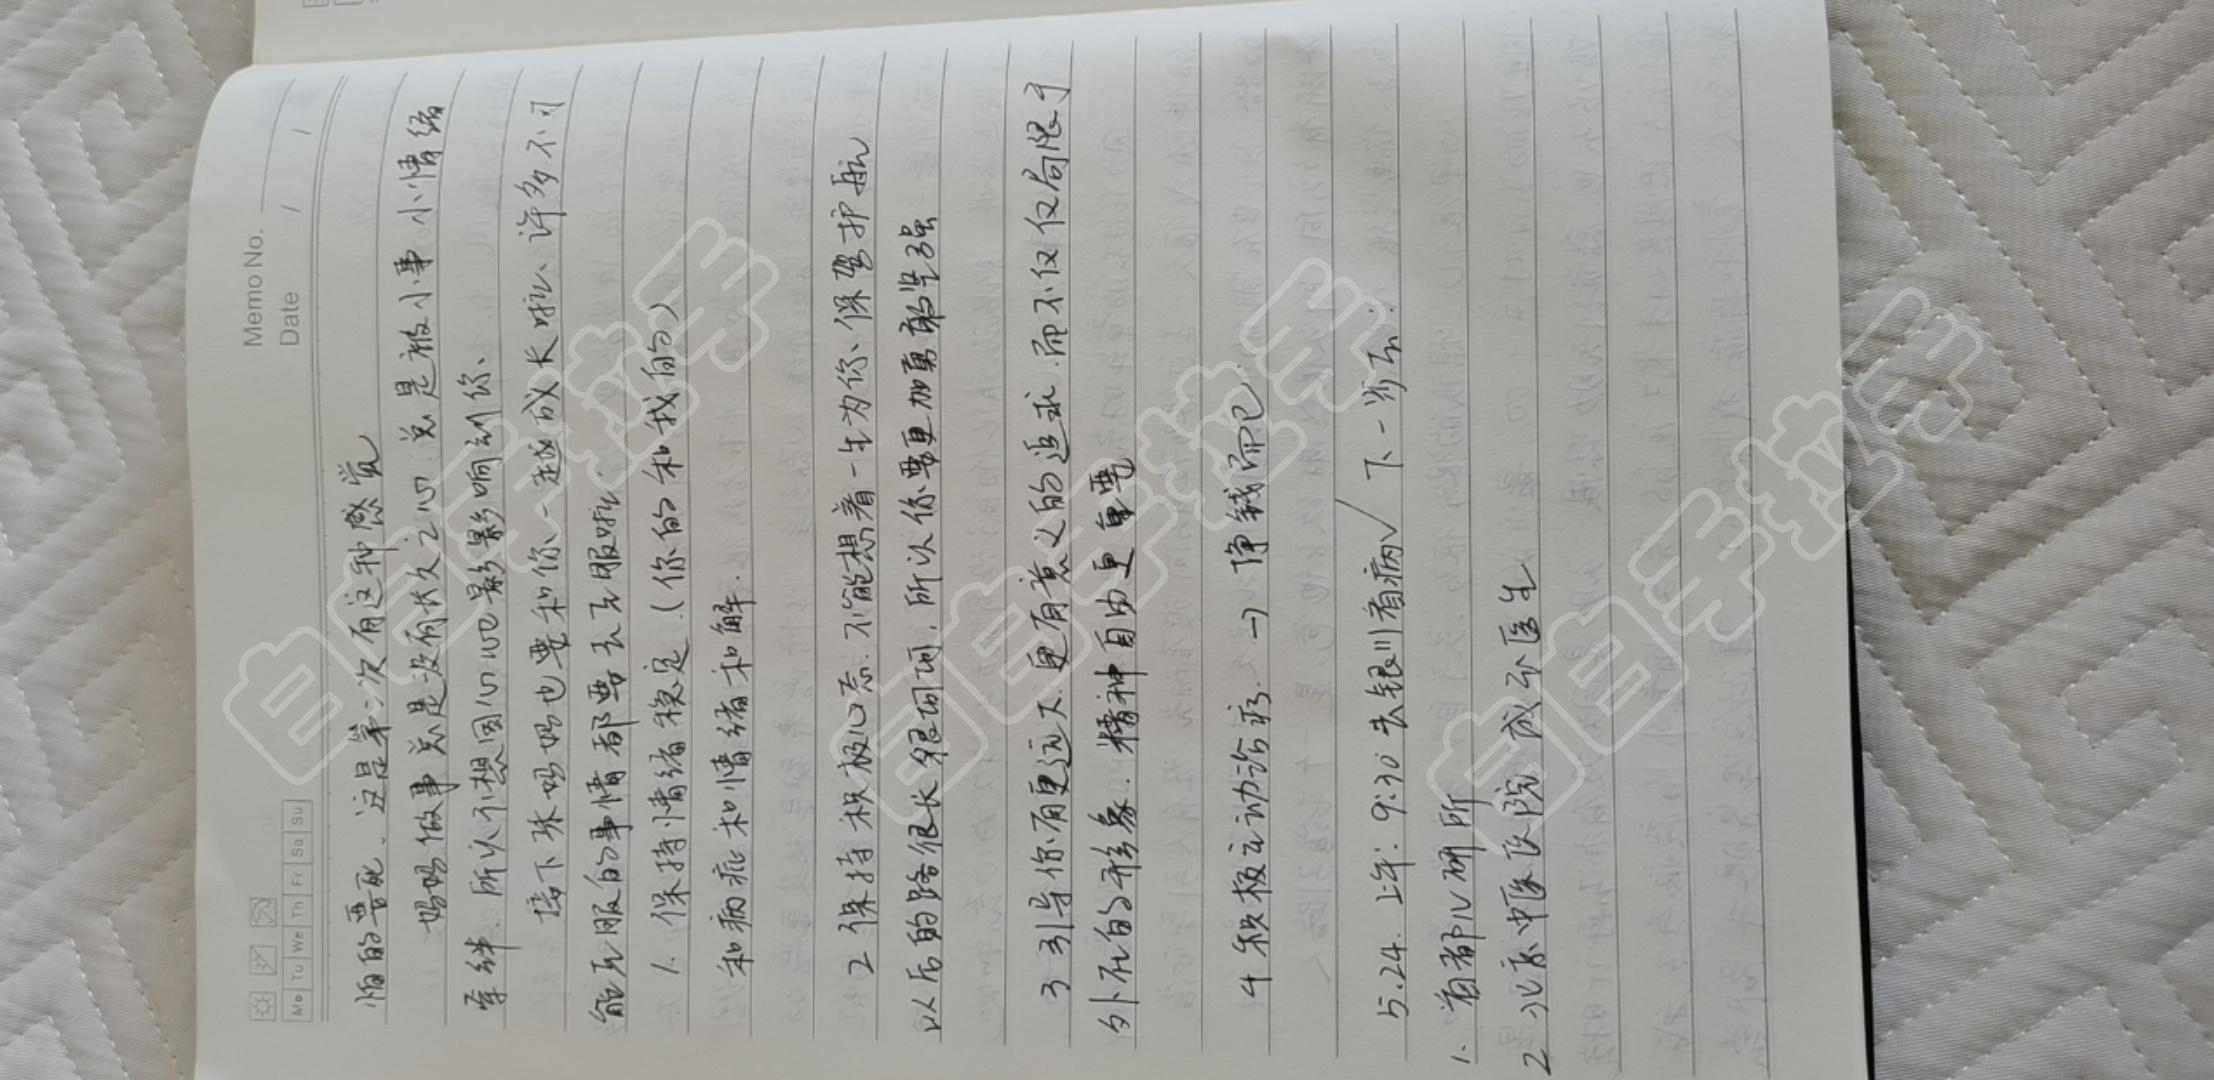 Memo No.
Mo Tu We Th Fr Sa Su
Date / /
怕的要死、这是第一次有这种感觉
妈妈做事总是没有长久之心.总是被小事小情绪
牵绊.所以不想因为woe影影响到你、
接下来妈妈也要和你一起成长啦、许多不可
能克服的事情都要去克服啦.
1. 保持情绪稳定.(你的和我的)
和病症和情绪和解.
2 保持积极心态.不能想着一生为你保驾护航
以后的路很长很坷坷.所以你要更加勇敢坚强
3 引导你有更远大.更有意义的追求.而不仅仅局限于
外在的形象.精神自由更重要
4 积极主动治疗.→ 挣钱而已.
5.24. 上午: 9:30 去银川看病✓ 下一步示:
1. 首都儿研所
2 北京中医医院
自臣手拉手
自臣手拉手
自臣手拉手